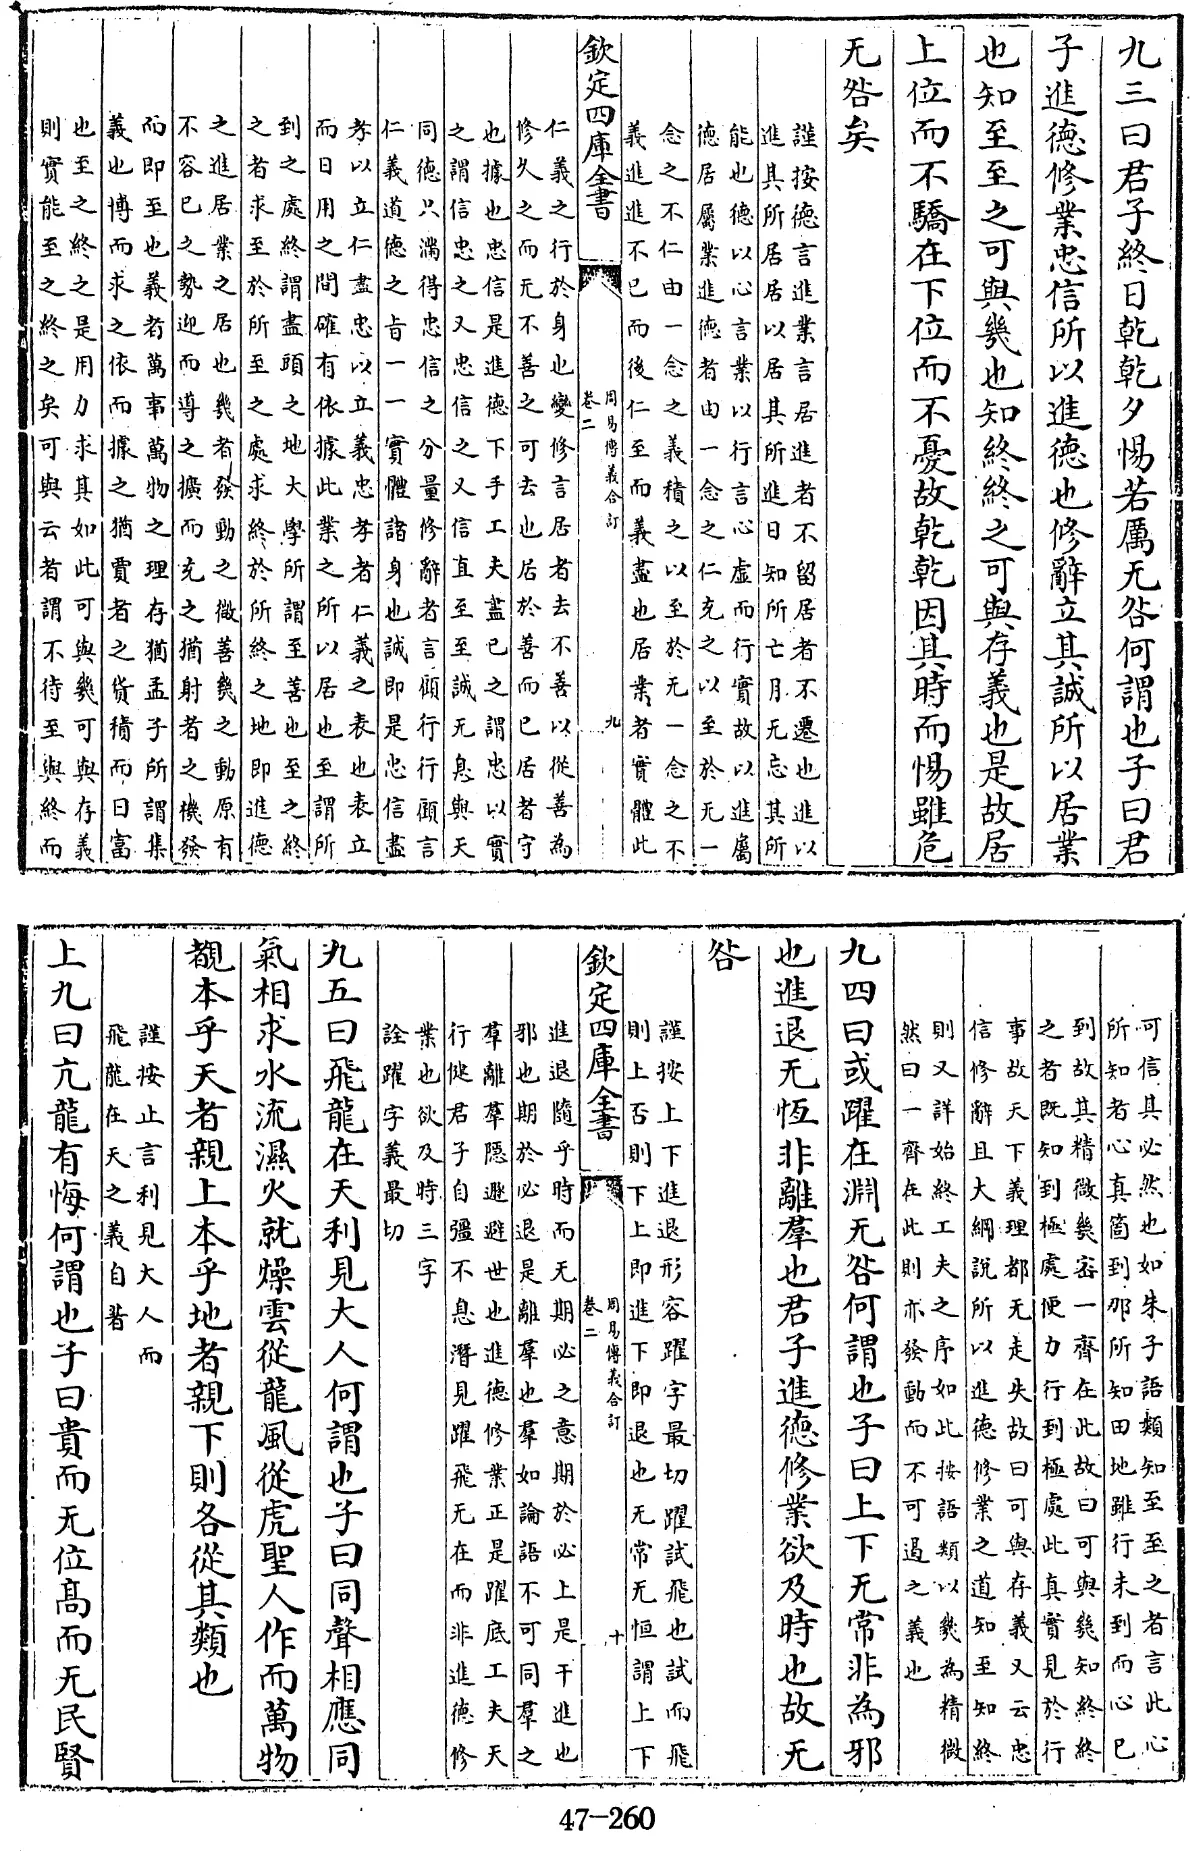 九三曰君子終日乾乾夕惕若厲无咎何謂也子曰君
子進德修業忠信所以進德也修辭立其誠所以居業
也知至至之可與幾也知終終之可與存義也是故居
上位而不驕在下位而不憂故乾乾因其時而惕雖危
无咎矣
謹按德言進業言居進者不留居者不遷也進以
進其所居居以居其所進日知所亡月无忘其所
能也德以心言業以行言心虛而行實故以進屬
德居屬業進德者由一念之仁充之以至於无一
念之不仁由一念之義積之以至於无一念之不
義進進不已而後仁至而義盡也居業者實體此
欽定四庫全書
周易傳義合訂
卷二
九
仁義之行於身也變修言居者去不善以從善為
修久之而无不善之可去也居於善而已居者守
也據也忠信是進德下手工夫盡已之謂忠以實
之謂信忠之又忠信之又信直至至誠无息與天
同德只滿得忠信之分量修辭者言顧行行顧言
仁義道德之旨一一實體諸身也誠即是忠信盡
孝以立仁盡忠以立義忠孝者仁義之表也表立
而日用之間確有依據此業之所以居也至謂所
到之處終謂盡頭之地大學所謂至善也至之終
之者求至於所至之處求終於所終之地即進德
之進居業之居也幾者發動之微善幾之動原有
不容已之勢迎而導之擴而充之猶射者之機發
而即至也義者萬事萬物之理存猶孟子所謂集
義也博而求之依而據之猶賈者之貨積而日富
也至之終之是用力求其如此可與幾可與存義
則實能至之終之矣可與云者謂不待至與終而
可信其必然也如朱子語類知至至之者言此心
所知者心真箇到那所知田地雖行未到而心已
到故其精微幾密一齊在此故曰可與幾知終終
之者既知到極處便力行到極處此真實見於行
事故天下義理都无走失故曰可與存義又云忠
信修辭且大綱說所以進德修業之道知至知終
則又詳始終工夫之序如此按語類以幾為精微
然曰一齊在此則亦發動而不可遏之義也
九四曰或躍在淵无咎何謂也子曰上下无常非為邪
也進退无恆非離羣也君子進德修業欲及時也故无
咎
謹按上下進退形容躍字最切躍試飛也試而飛
則上否則下上即進下即退也无常无恒謂上下
欽定四庫全書
周易傳義合訂
卷二
十
進退隨乎時而无期必之意期於必上是干進也
邪也期於必退是離羣也羣如論語不可同羣之
羣離羣隱遯避世也進德修業正是躍底工夫天
行健君子自彊不息潛見躍飛无在而非進德修
業也欲及時三字
詮躍字義最切
九五曰飛龍在天利見大人何謂也子曰同聲相應同
氣相求水流濕火就燥雲從龍風從虎聖人作而萬物
覩本乎天者親上本乎地者親下則各從其類也
謹按止言利見大人而
飛龍在天之義自著
上九曰亢龍有悔何謂也子曰貴而无位高而无民賢
47-260